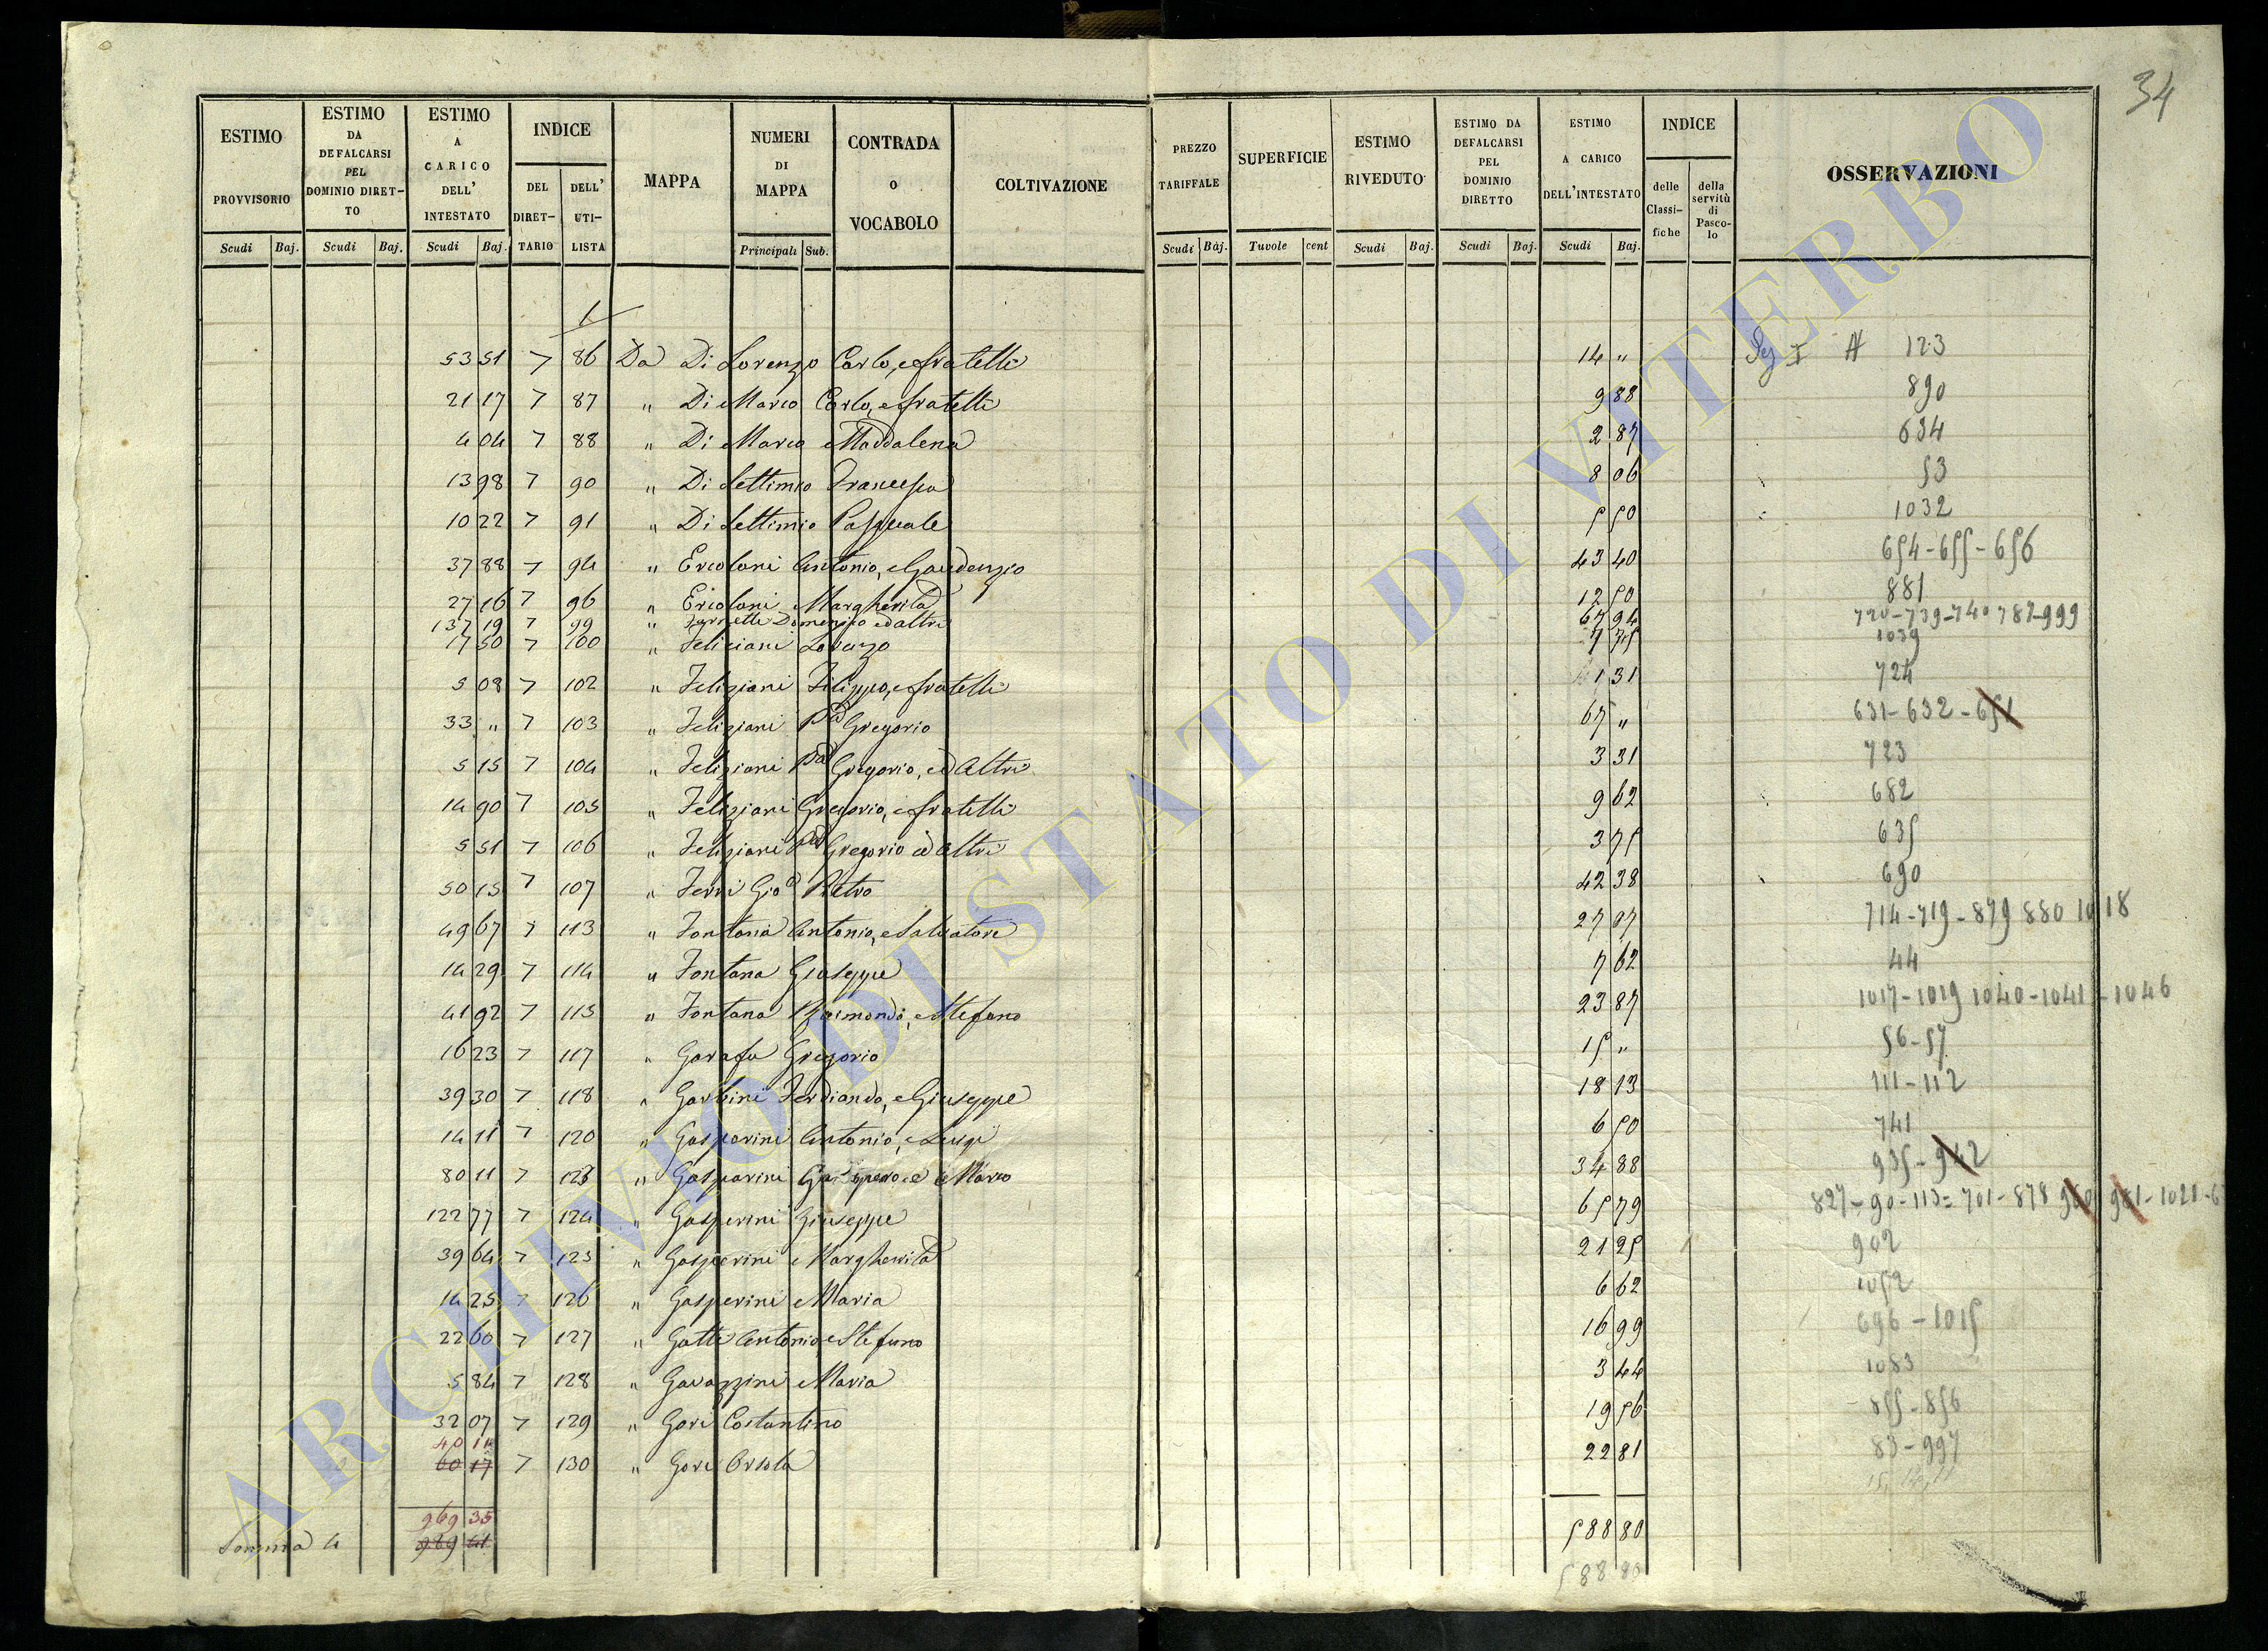 34
ESTIMO PROVVISORIO Scudi Baj.
ESTIMO DA DEFALCARSI PEL DOMINIO DIRET- TO Scudi Baj.
ESTIMO A CARICO DELL' INTESTATO Scudi Baj.
INDICE DEL DIRET- TARIO DELL' UTI- LISTA
MAPPA
NUMERI DI MAPPA Principali Sub.
CONTRADA O VOCABOLO
COLTIVAZIONE
PREZZO TARIFFALE Scudi Baj.
SUPERFICIE Tavole cent
ESTIMO RIVEDUTO Scudi Baj.
ESTIMO DA DEFALCARSI PEL DOMINIO DIRETTO Scudi Baj.
ESTIMO A CARICO DELL'INTESTATO Scudi Baj.
INDICE delle Classi- fiche della servitù di Pasco- lo
OSSERVAZIONI
53 51 7 86 Da Di Lorenzo Carlo, e fratelli 14 " 123
21 17 7 87 " Di Marco Carlo, e fratelli 9 88 890
4 04 7 88 " Di Marco Maddalena 2 87 634
13 98 7 90 " Di Settimio Francesca 8 06 53
10 22 7 91 " Di Settimio Pasquale 5 50 1032
37 88 7 94 " Ercolani Antonio, e Gaudenzio 43 40 654-655-656
27 16 7 96 " Ercolani Margherita 12 50 881
137 19 7 99 " Domenico ed altri 67 94 720-739-740 787-999
17 50 7 100 " Feliciani Lorenzo 7 75 1039
5 08 7 102 " Feliziani Filippo, e fratelli 1 31 724
33 " 7 103 " Feliziani Gregorio 67 " 631-632-651
5 15 7 104 " Feliziani Gregorio, ed Altri 3 31 723
14 90 7 105 " Feliziani Gregorio, e fratelli 9 62 682
5 51 7 106 " Feliziani Gregorio ed Altri 3 75 635
50 15 7 107 " Ferri Gio Pietro 42 38 690
49 67 7 113 " Fontana Antonio, e Salvatore 27 07 714-719-879 880 1018
14 29 7 114 " Fontana Giuseppe 7 62 44
41 92 7 115 " Fontana Raimondo, e Stefano 23 87 1017-1019 1040-1041-1046
16 23 7 117 " Garafa Gregorio 15 " 56-57
39 30 7 118 " Garbini Ferdiando, e Giuseppe 18 13 111-112
14 11 7 120 " Gasparini Antonio, e Luigi 6 50 741
80 11 7 123 " Gasparini Gaspero ed Marco 34 88 935-942
122 77 7 124 " Gasperini Giuseppe 65 79 827-90-113=701-878 980 981-1021-6
39 64 7 125 " Gasperini Margherita 21 25 902
14 25 7 126 " Gasperini Maria 6 62 1052
22 60 7 127 " Gatti Antonio e Stefano 16 99 696-1015
5 84 7 128 " Gavazzini Maria 3 44 1083
32 07 7 129 " Gori Costantino 19 56 855-856
40 11
60 17 7 130 " Gori Orsola 22 81 83-997
969 35
Somma 4 989 41 588 80
588 80
ARCHIVIO DI STATO DI VITERBO